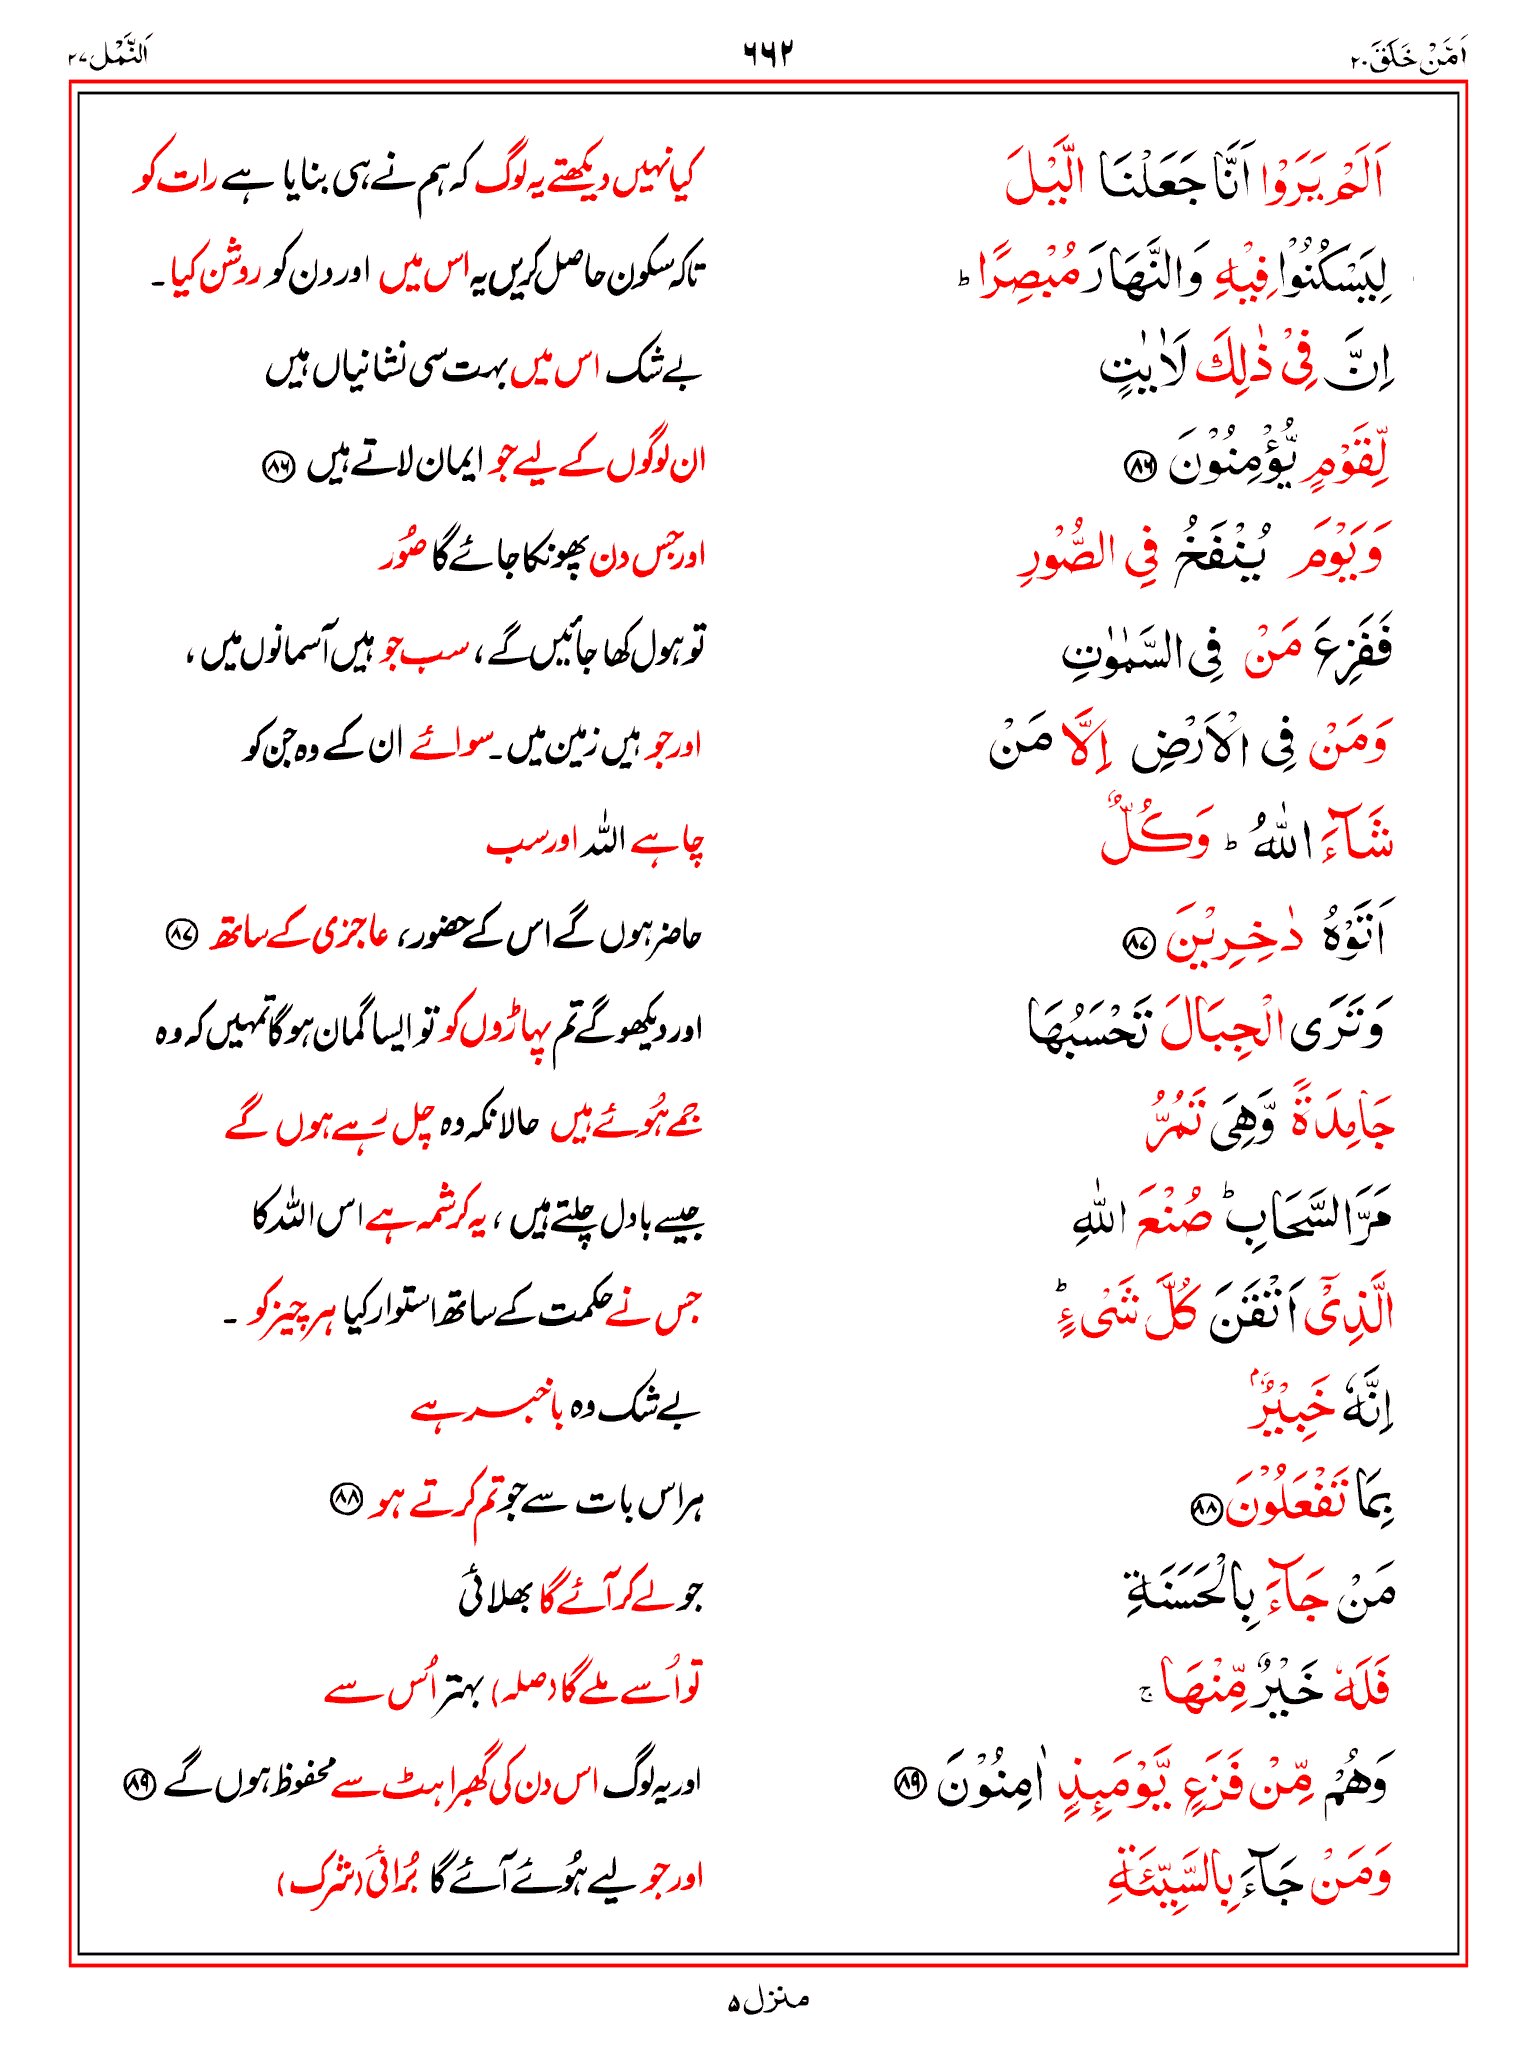 اَمَّنْ خَلَقَ ۲۰ ۶۶۲ اَلنَّمْل ۲۷
اَلَمْ يَرَوْا اَنَّا جَعَلْنَا الَّيْلَ کیا نہیں دیکھتے یہ لوگ کہ ہم نے ہی بنایا ہے رات کو
لِيَسْكُنُوْا فِيْهِ وَالنَّهَارَ مُبْصِرًا ؕ تاکہ سکون حاصل کریں یہ اس میں اور دن کو روشن کیا۔
اِنَّ فِيْ ذٰلِكَ لَاٰيٰتٍ بے شک اس میں بہت سی نشانیاں ہیں
لِّقَوْمٍ يُّؤْمِنُوْنَ ۸۶ ان لوگوں کے لیے جو ایمان لاتے ہیں ۸۶
وَيَوْمَ يُنْفَخُ فِي الصُّوْرِ اور جس دن پھونکا جائے گا صُور
فَفَزِعَ مَنْ فِي السَّمٰوٰتِ تو ہول کھا جائیں گے، سب جو ہیں آسمانوں میں،
وَمَنْ فِي الْاَرْضِ اِلَّا مَنْ اور جو ہیں زمین میں۔ سوائے ان کے وہ جن کو
شَآءَ اللّٰهُ ؕ وَكُلٌّ چاہے اللہ اور سب
اَتَوْهُ دٰخِرِيْنَ ۸۷ حاضر ہوں گے اس کے حضور، عاجزی کے ساتھ ۸۷
وَتَرَى الْجِبَالَ تَحْسَبُهَا اور دیکھو گے تم پہاڑوں کو تو ایسا گمان ہوگا تمہیں کہ وہ
جَامِدَةً وَّهِيَ تَمُرُّ جمے ہُوئے ہیں حالانکہ وہ چل رہے ہوں گے
مَرَّ السَّحَابِ ؕ صُنْعَ اللّٰهِ جیسے بادل چلتے ہیں، یہ کرشمہ ہے اس اللہ کا
الَّذِيْٓ اَتْقَنَ كُلَّ شَيْءٍ ؕ جس نے حکمت کے ساتھ استوار کیا ہر چیز کو ۔
اِنَّهٗ خَبِيْرٌۢ بے شک وہ باخبر ہے
بِمَا تَفْعَلُوْنَ ۸۸ ہر اس بات سے جو تم کرتے ہو ۸۸
مَنْ جَآءَ بِالْحَسَنَةِ جو لے کر آئے گا بھلائی
فَلَهٗ خَيْرٌ مِّنْهَا ۚ تو اُسے ملے گا (صلہ) بہتر اُس سے
وَهُمْ مِّنْ فَزَعٍ يَّوْمَىِٕذٍ اٰمِنُوْنَ ۸۹ اور یہ لوگ اس دن کی گھبراہٹ سے محفوظ ہوں گے ۸۹
وَمَنْ جَآءَ بِالسَّيِّئَةِ اور جو لیے ہُوئے آئے گا بُرائی (شرک)
منزل ۵